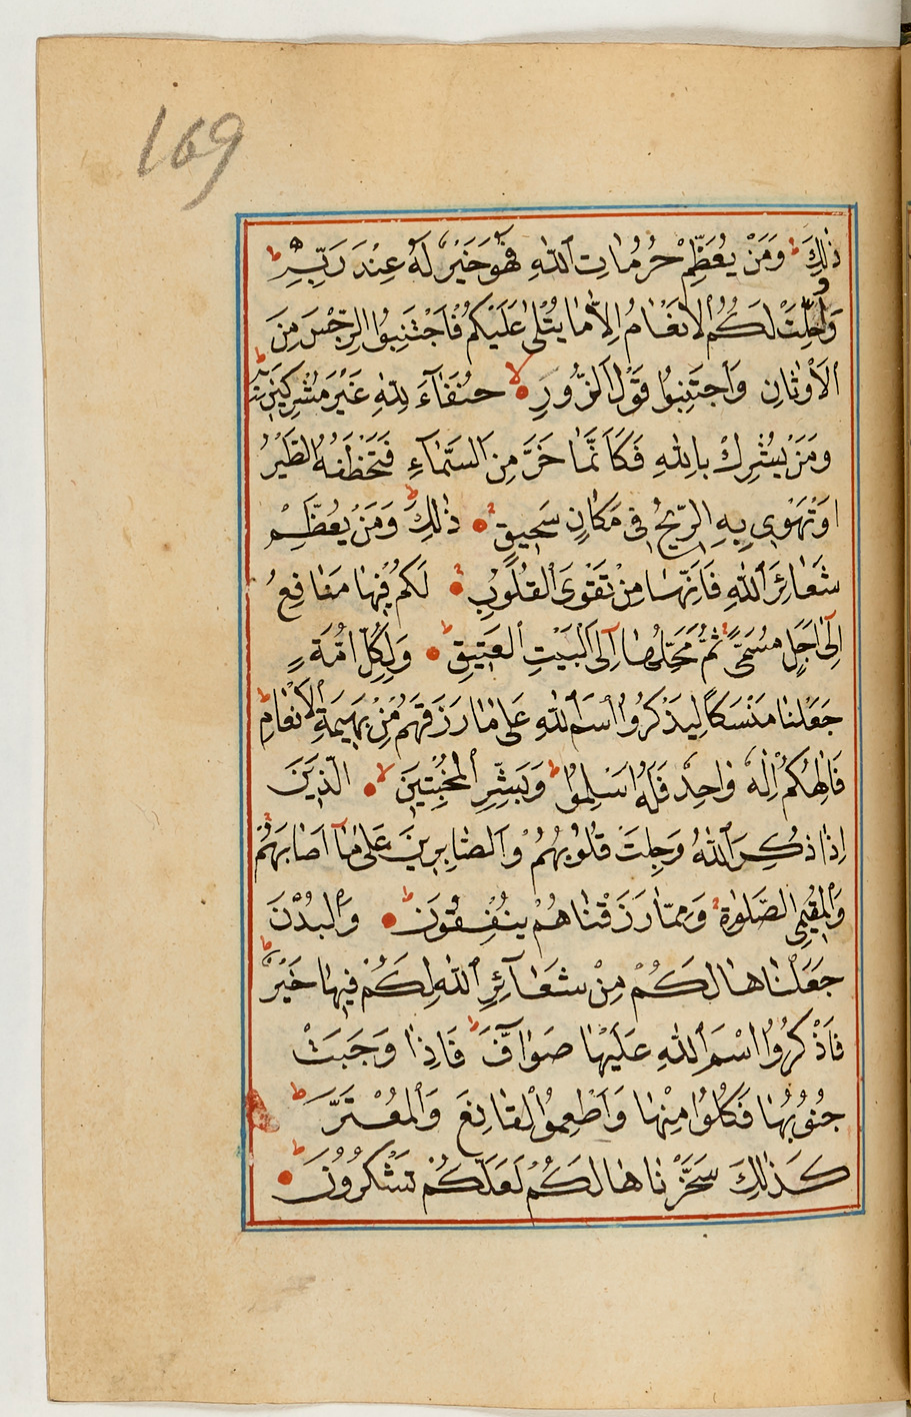 169
ذٰلِكَ ط وَمَنْ يُعَظِّمْ حُرُمَاتِ اللهِ فَهُوَ خَيْرٌ لَهُ عِنْدَ رَبِّهِ ط
وَاُحِلَّتْ لَكُمُ الْاَنْعَامُ اِلَّا مَا يُتْلٰى عَلَيْكُمْ فَاجْتَنِبُوا الرِّجْسَ مِنَ
الْاَوْثَانِ وَاجْتَنِبُوا قَوْلَ الزُّورِ لا حُنَفَاءَ لِلّٰهِ غَيْرَ مُشْرِكِينَ بِهِ ط
وَمَنْ يُشْرِكْ بِاللهِ فَكَاَنَّمَا خَرَّ مِنَ السَّمَاءِ فَتَخْطَفُهُ الطَّيْرُ
اَوْ تَهْوِي بِهِ الرِّيحُ فِي مَكَانٍ سَحِيقٍ ذٰلِكَ ط وَمَنْ يُعَظِّمْ
شَعَائِرَ اللهِ فَاِنَّهَا مِنْ تَقْوَى الْقُلُوبِ لَكُمْ فِيهَا مَنَافِعُ
اِلٰى اَجَلٍ مُسَمًّى ثُمَّ مَحِلُّهَا اِلَى الْبَيْتِ الْعَتِيقِ ط وَلِكُلِّ اُمَّةٍ
جَعَلْنَا مَنْسَكًا لِيَذْكُرُوا اسْمَ اللهِ عَلٰى مَا رَزَقَهُمْ مِنْ بَهِيمَةِ الْاَنْعَامِ ط
فَاِلٰهُكُمْ اِلٰهٌ وَاحِدٌ فَلَهُ اَسْلِمُوا ط وَبَشِّرِ الْمُخْبِتِينَ لا الَّذِينَ
اِذَا ذُكِرَ اللهُ وَجِلَتْ قُلُوبُهُمْ وَالصَّابِرِينَ عَلٰى مَا اَصَابَهُمْ
وَالْمُقِيمِي الصَّلٰوةِ وَمِمَّا رَزَقْنَاهُمْ يُنْفِقُونَ ط وَالْبُدْنَ
جَعَلْنَاهَا لَكُمْ مِنْ شَعَائِرِ اللهِ لَكُمْ فِيهَا خَيْرٌ ط
فَاذْكُرُوا اسْمَ اللهِ عَلَيْهَا صَوَافَّ ط فَاِذَا وَجَبَتْ
جُنُوبُهَا فَكُلُوا مِنْهَا وَاَطْعِمُوا الْقَانِعَ وَالْمُعْتَرَّ ط
كَذٰلِكَ سَخَّرْنَاهَا لَكُمْ لَعَلَّكُمْ تَشْكُرُونَ ط